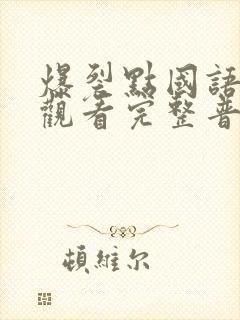 爆裂點國語
觀看完整普
頓維尔